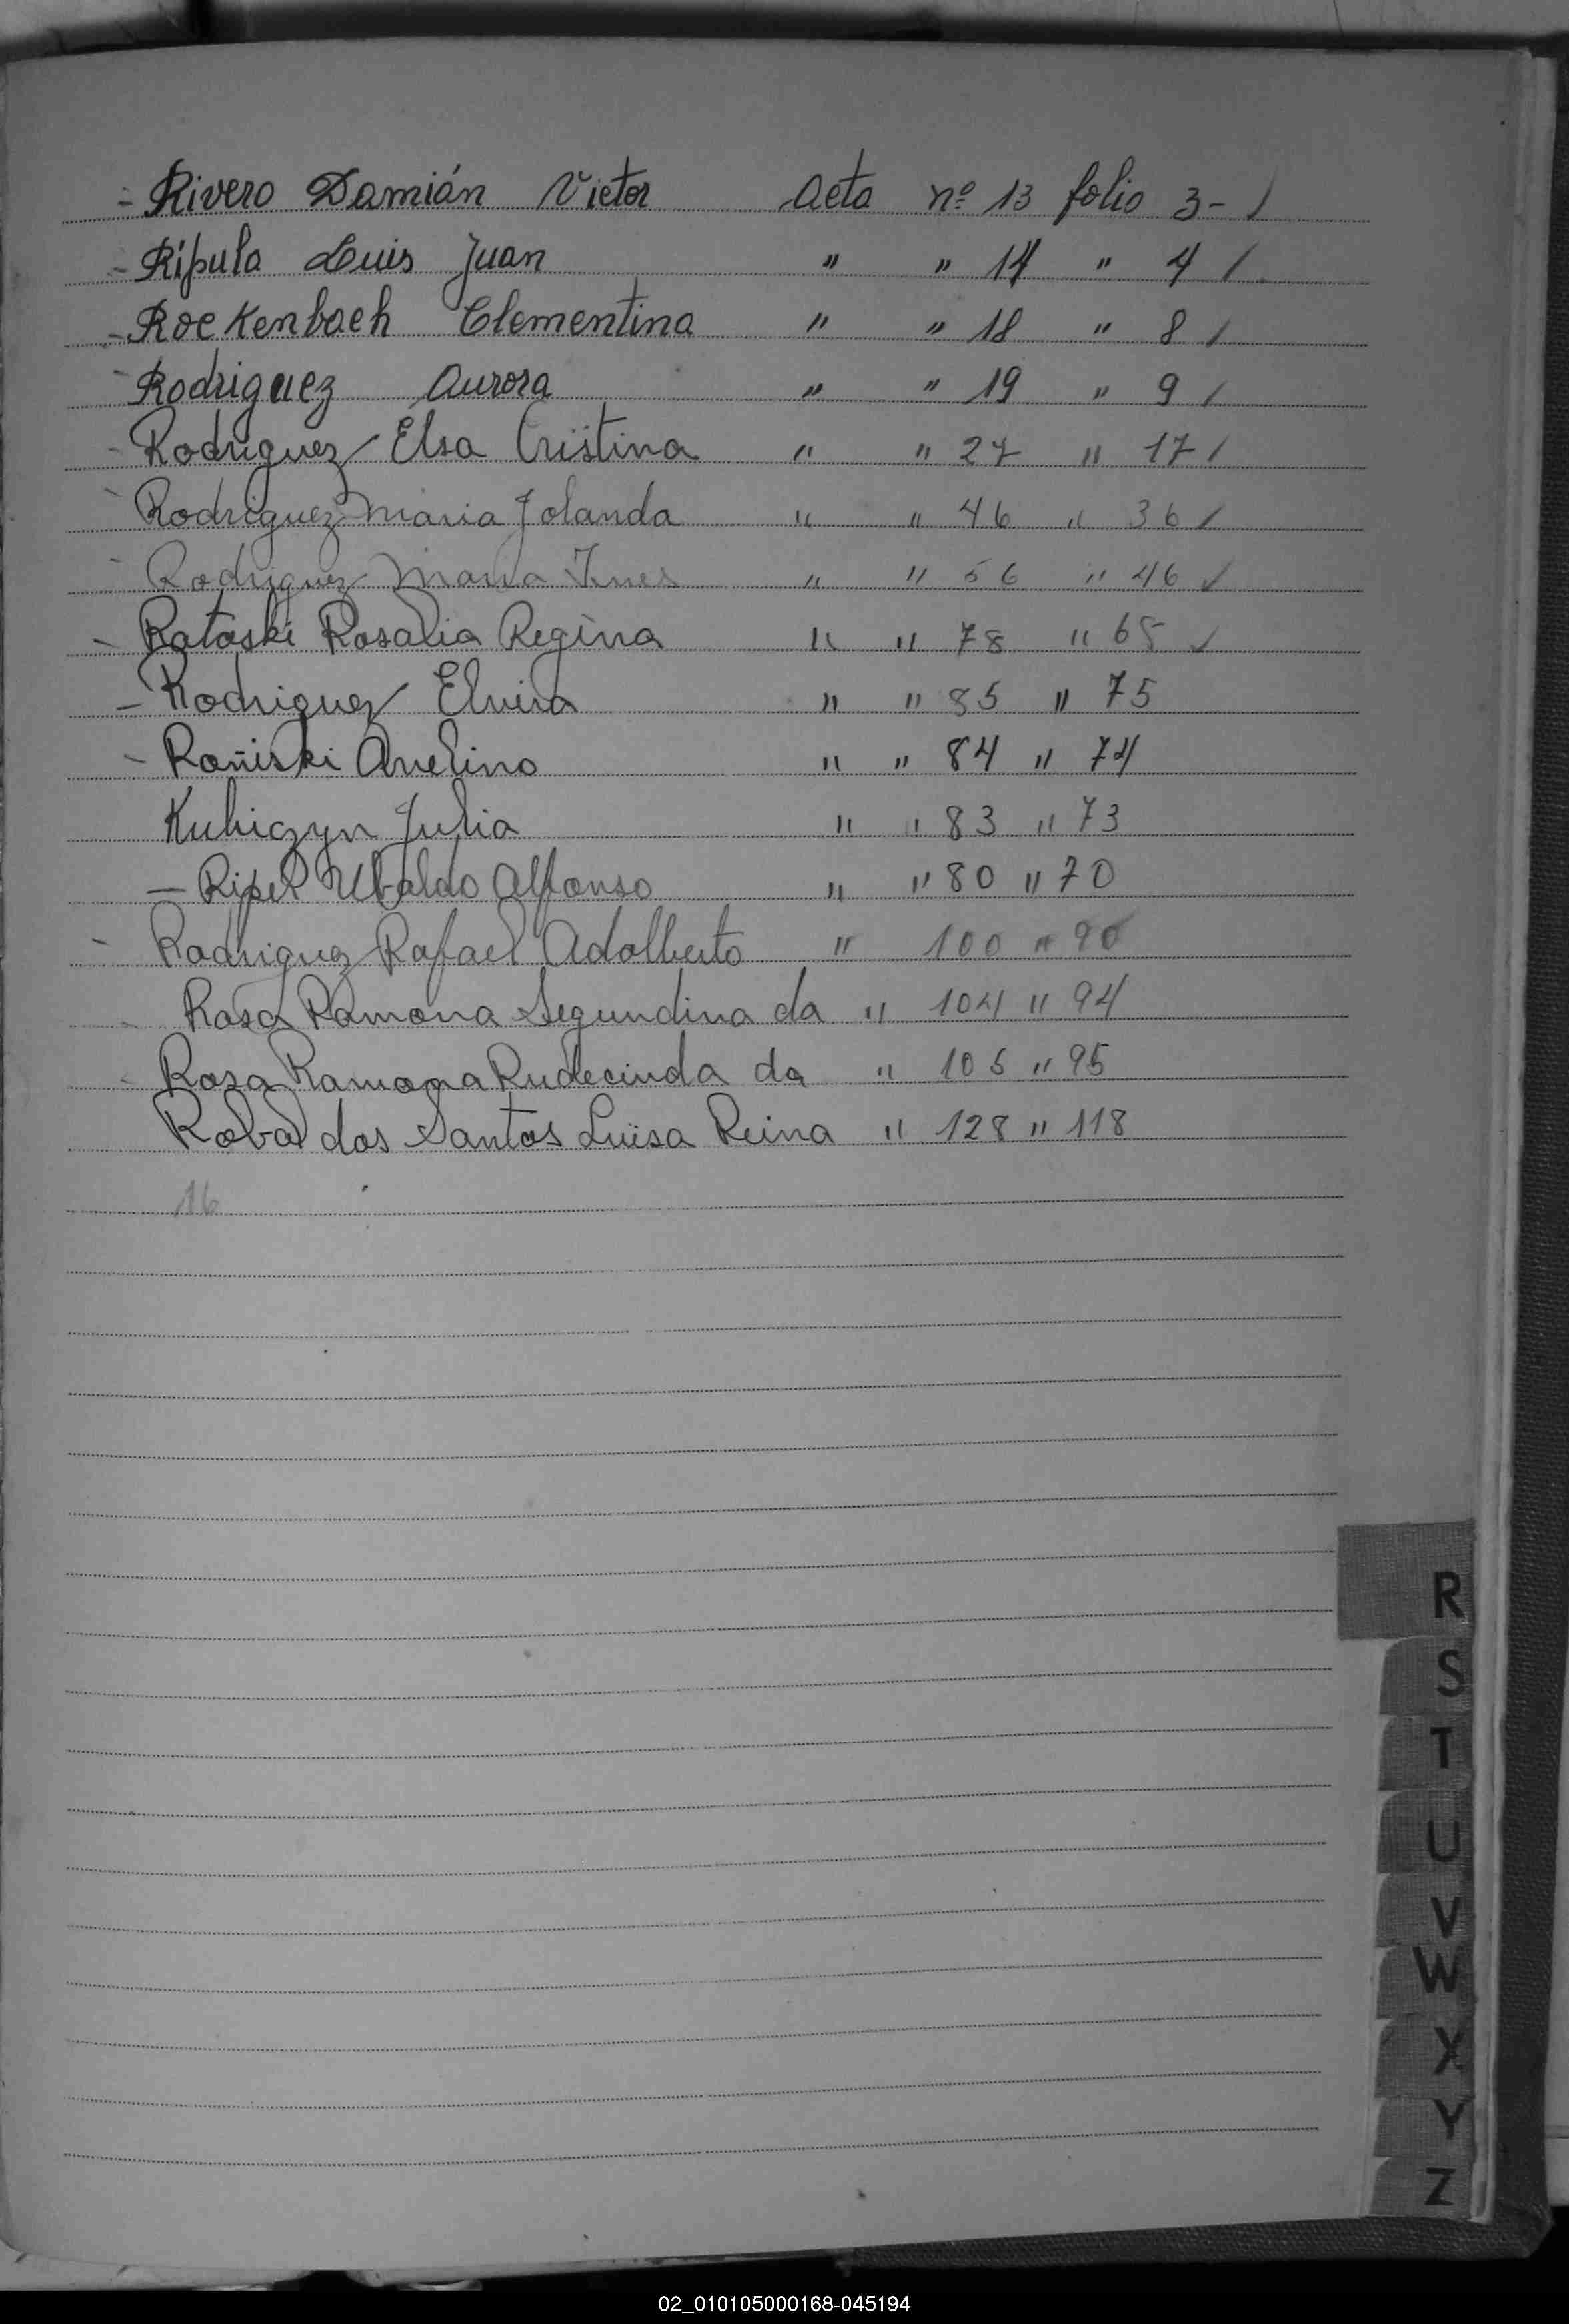 - Rivero Damián Victor Acta nº 13 folio 3 - /
- Ripula Luis Juan " " 14 " 4 /
- Rockenbach Clementina " " 18 " 8 /
- Rodriguez Aurora " " 19 " 9 /
- Rodriguez Elsa Cristina " " 27 " 17 /
- Rodriguez Maria Jolanda " " 46 " 36 /
- Rodriguez Maria Ines " " 56 " 46 ✓
- Ratoski Rosalia Regina " " 78 " 65 ✓
- Rodriguez Elvira " " 85 " 75
- Roñiski Avelino " " 84 " 74
Kubiczyn Julia " " 83 " 73
- Ripel Ubaldo Alfonso " " 80 " 70
- Rodriguez Rafael Adalberto " 100 " 90
- Rosa Ramona Segundina da " 104 " 94
- Roza Ramona Rudecinda da " 105 " 95
Roba dos Santos Luisa Reina " 128 " 118
16
R
S
T
U
V
W
X
Y
Z
02_010105000168-045194